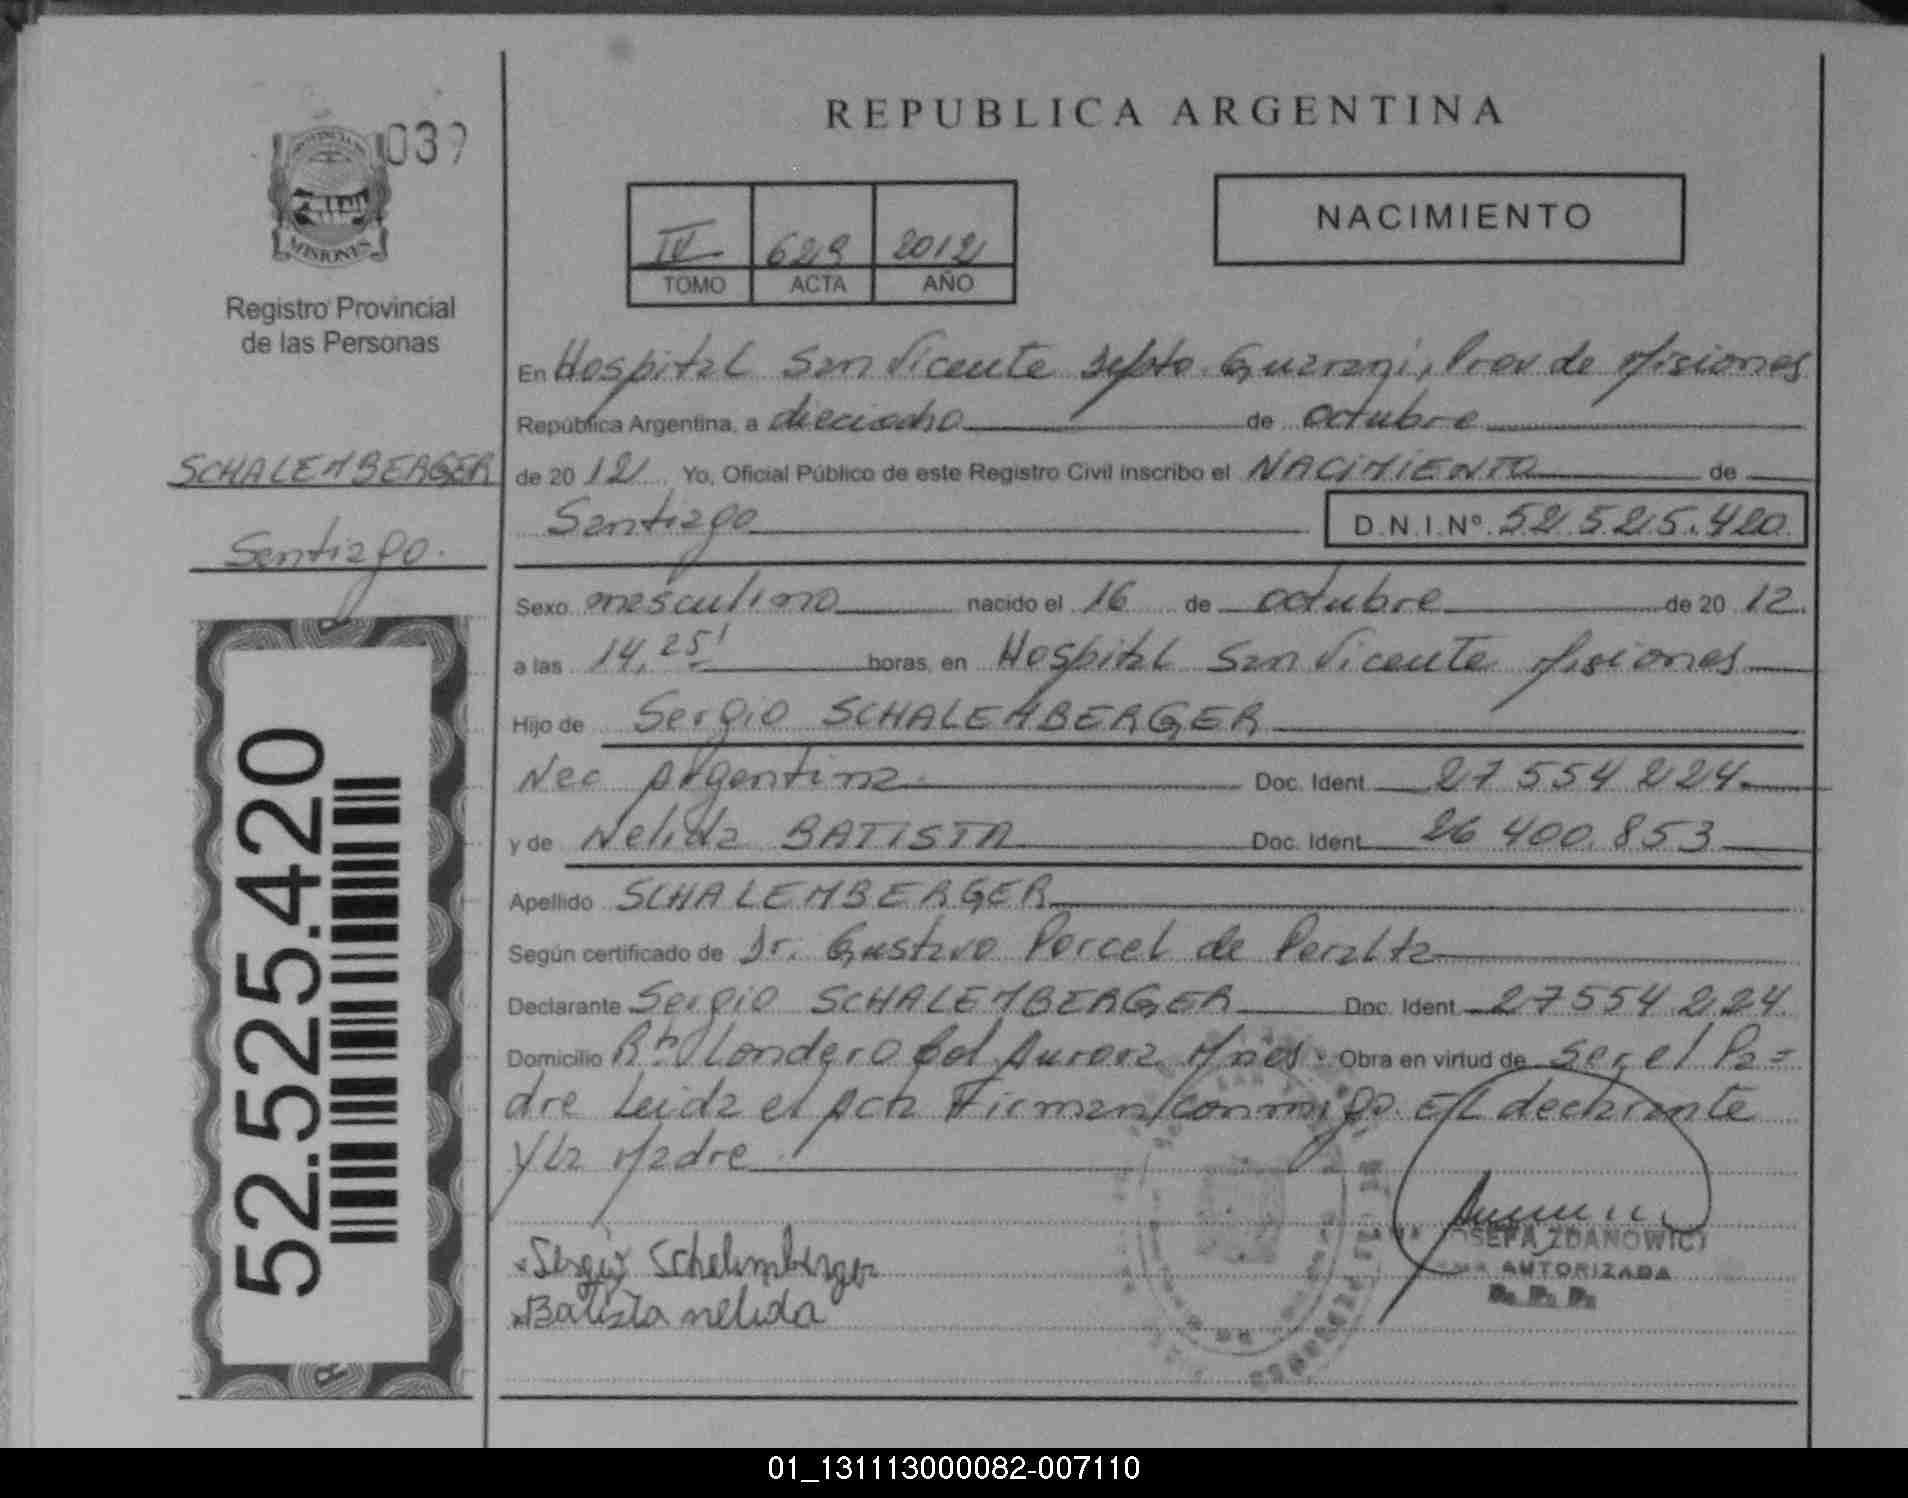 REPUBLICA ARGENTINA
039
PROVINCIA DE
MISIONES
Registro Provincial
de las Personas
NACIMIENTO
IV 629 2012
TOMO ACTA AÑO
En Hospital San Vicente Depto. Guarani, Prov de Misiones
República Argentina, a dieciocho de octubre
SCHALEMBERGER
Santiago.
de 20 12 Yo, Oficial Público de este Registro Civil inscribo el NACIMIENTO de
Santiago D.N.I.Nº 52.525.420
Sexo masculino nacido el 16 de octubre de 20 12.
a las 14,25' horas, en Hospital San Vicente Misiones
Hijo de Sergio SCHALEMBERGER
Nac Argentina Doc. Ident. 27 554 224
y de Nelida BATISTA Doc. Ident. 26 400.853
Apellido SCHALEMBERGER
Según certificado de Dr. Gustavo Porcel de Peralta
Declarante Sergio SCHALEMBERGER Doc. Ident. 27554 224.
Domicilio Londero Col Aurora Mnes. Obra en virtud de Ser el Pa=
dre Leida el Acta Firman conmigo El declarante
y la Madre
52.525.420
Sergio Schalemberger
Batista nelida
JOSEFA ZDANOWICZ
AUTORIZADA
01_131113000082-007110